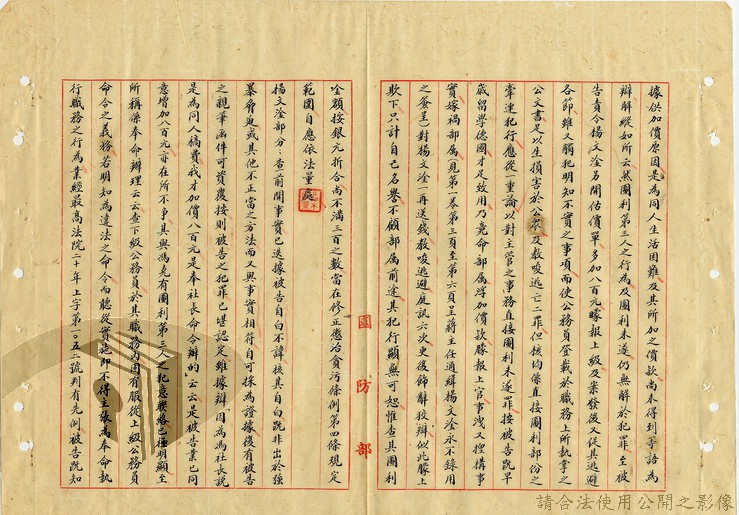 據供加價原因是為同人生活困難及其所加之價款尚未得到等語為
辯解縱如所云然圖利第三人之行為及圖利未遂仍無解於犯罪至被
告責令楊文淦另開估價單多加八百元矇報上級及案發後又促其逃避
各節雖又觸犯明知不實之事項而使公務員登載於職務上所執掌之
公文書足以生損害於公眾及教唆逃亡二罪但核均係直接圖利部份之
牽連犯行應從一重論以對主管之事務直接圖利未遂罪按被告既早
歲留學德國才足致用乃竟命部屬浮加價款矇報上官事洩又捏構事
實嫁禍部屬(見第一卷第三頁至第六頁呈蔣主任通緝楊文淦永不錄用
之簽呈)對楊文淦一再送錢教唆逃避庭訊六次更後飾辭狡辯似此矇上
欺下只計自己名譽不顧部屬前途其犯行顯無可恕惟查其圖利
國防部
金額按銀元折合尚不滿三百之數當在修正懲治貪污條例第四條規定
範圍自應依法量處
楊文淦部分：查前開事實已迭據被告自白不諱核其自白既非出於強
暴脅迫或其他不正當之方法而又與事實相符自可採為證據復有被告
之親筆函件可資覆按則被告之犯罪已堪認定雖據辯「因為馮社長說
是為同人稿費我才加價八百元是奉社長命令辦的」云云是被告業已同
意增加八百元亦在所不爭其與馮堯有圖利第三人之犯意聯絡已極明顯至
所稱係奉命辦理云云查下級公務員於其職務內固有服從上級公務員
命令之義務若明知為違法之命令而聽從實施即不得主張為奉命執
行職務之行為業經最高法院二十年上字第一〇五二號判有先例被告既知
請合法使用公開之影像